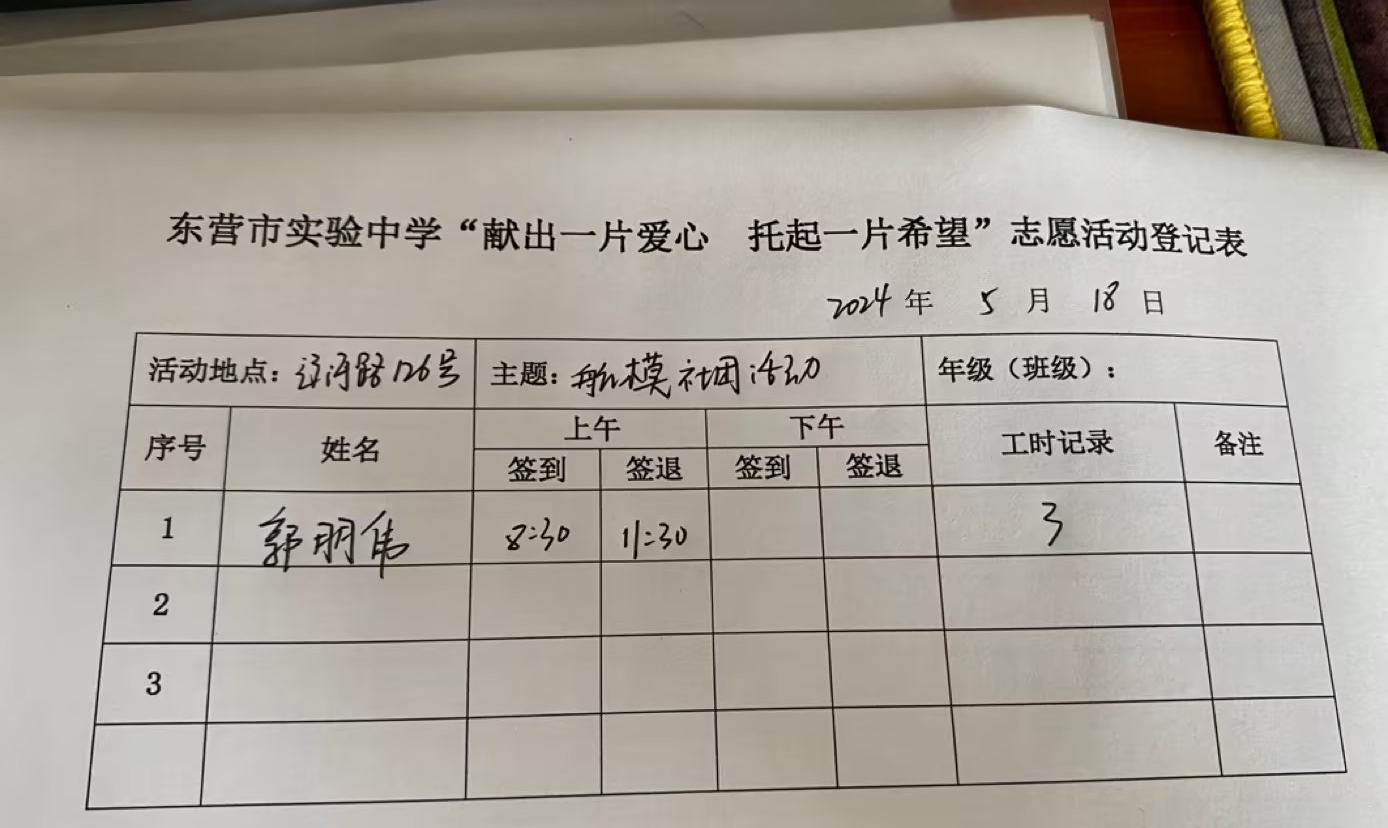 东营市实验中学“献出一片爱心 托起一片希望”志愿活动登记表
2024 年 5 月 18 日
活动地点：辽河路126号 主题：航模社团活动 年级（班级）：
序号 姓名 上午 下午 工时记录 备注
签到 签退 签到 签退
1 郭朋伟 8:30 11:30 3
2
3